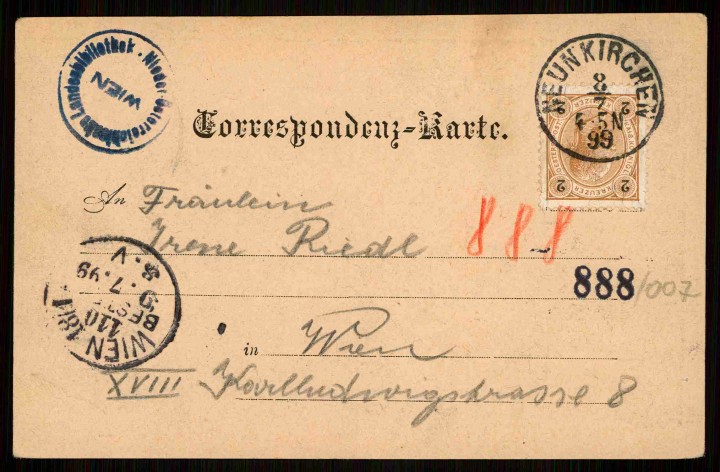 Niederösterreichische Landesbibliothek · WIEN
NEUNKIRCHEN
8
7
4-5N
99
2 KREUZER 2
Correspondenz-Karte.
An Fräulein
Irene Riedl
888
888/007
WIEN 18/1
110
BEST
9. 7. 99
8. V
in Wien
XVIII Karlludwigstrasse 8